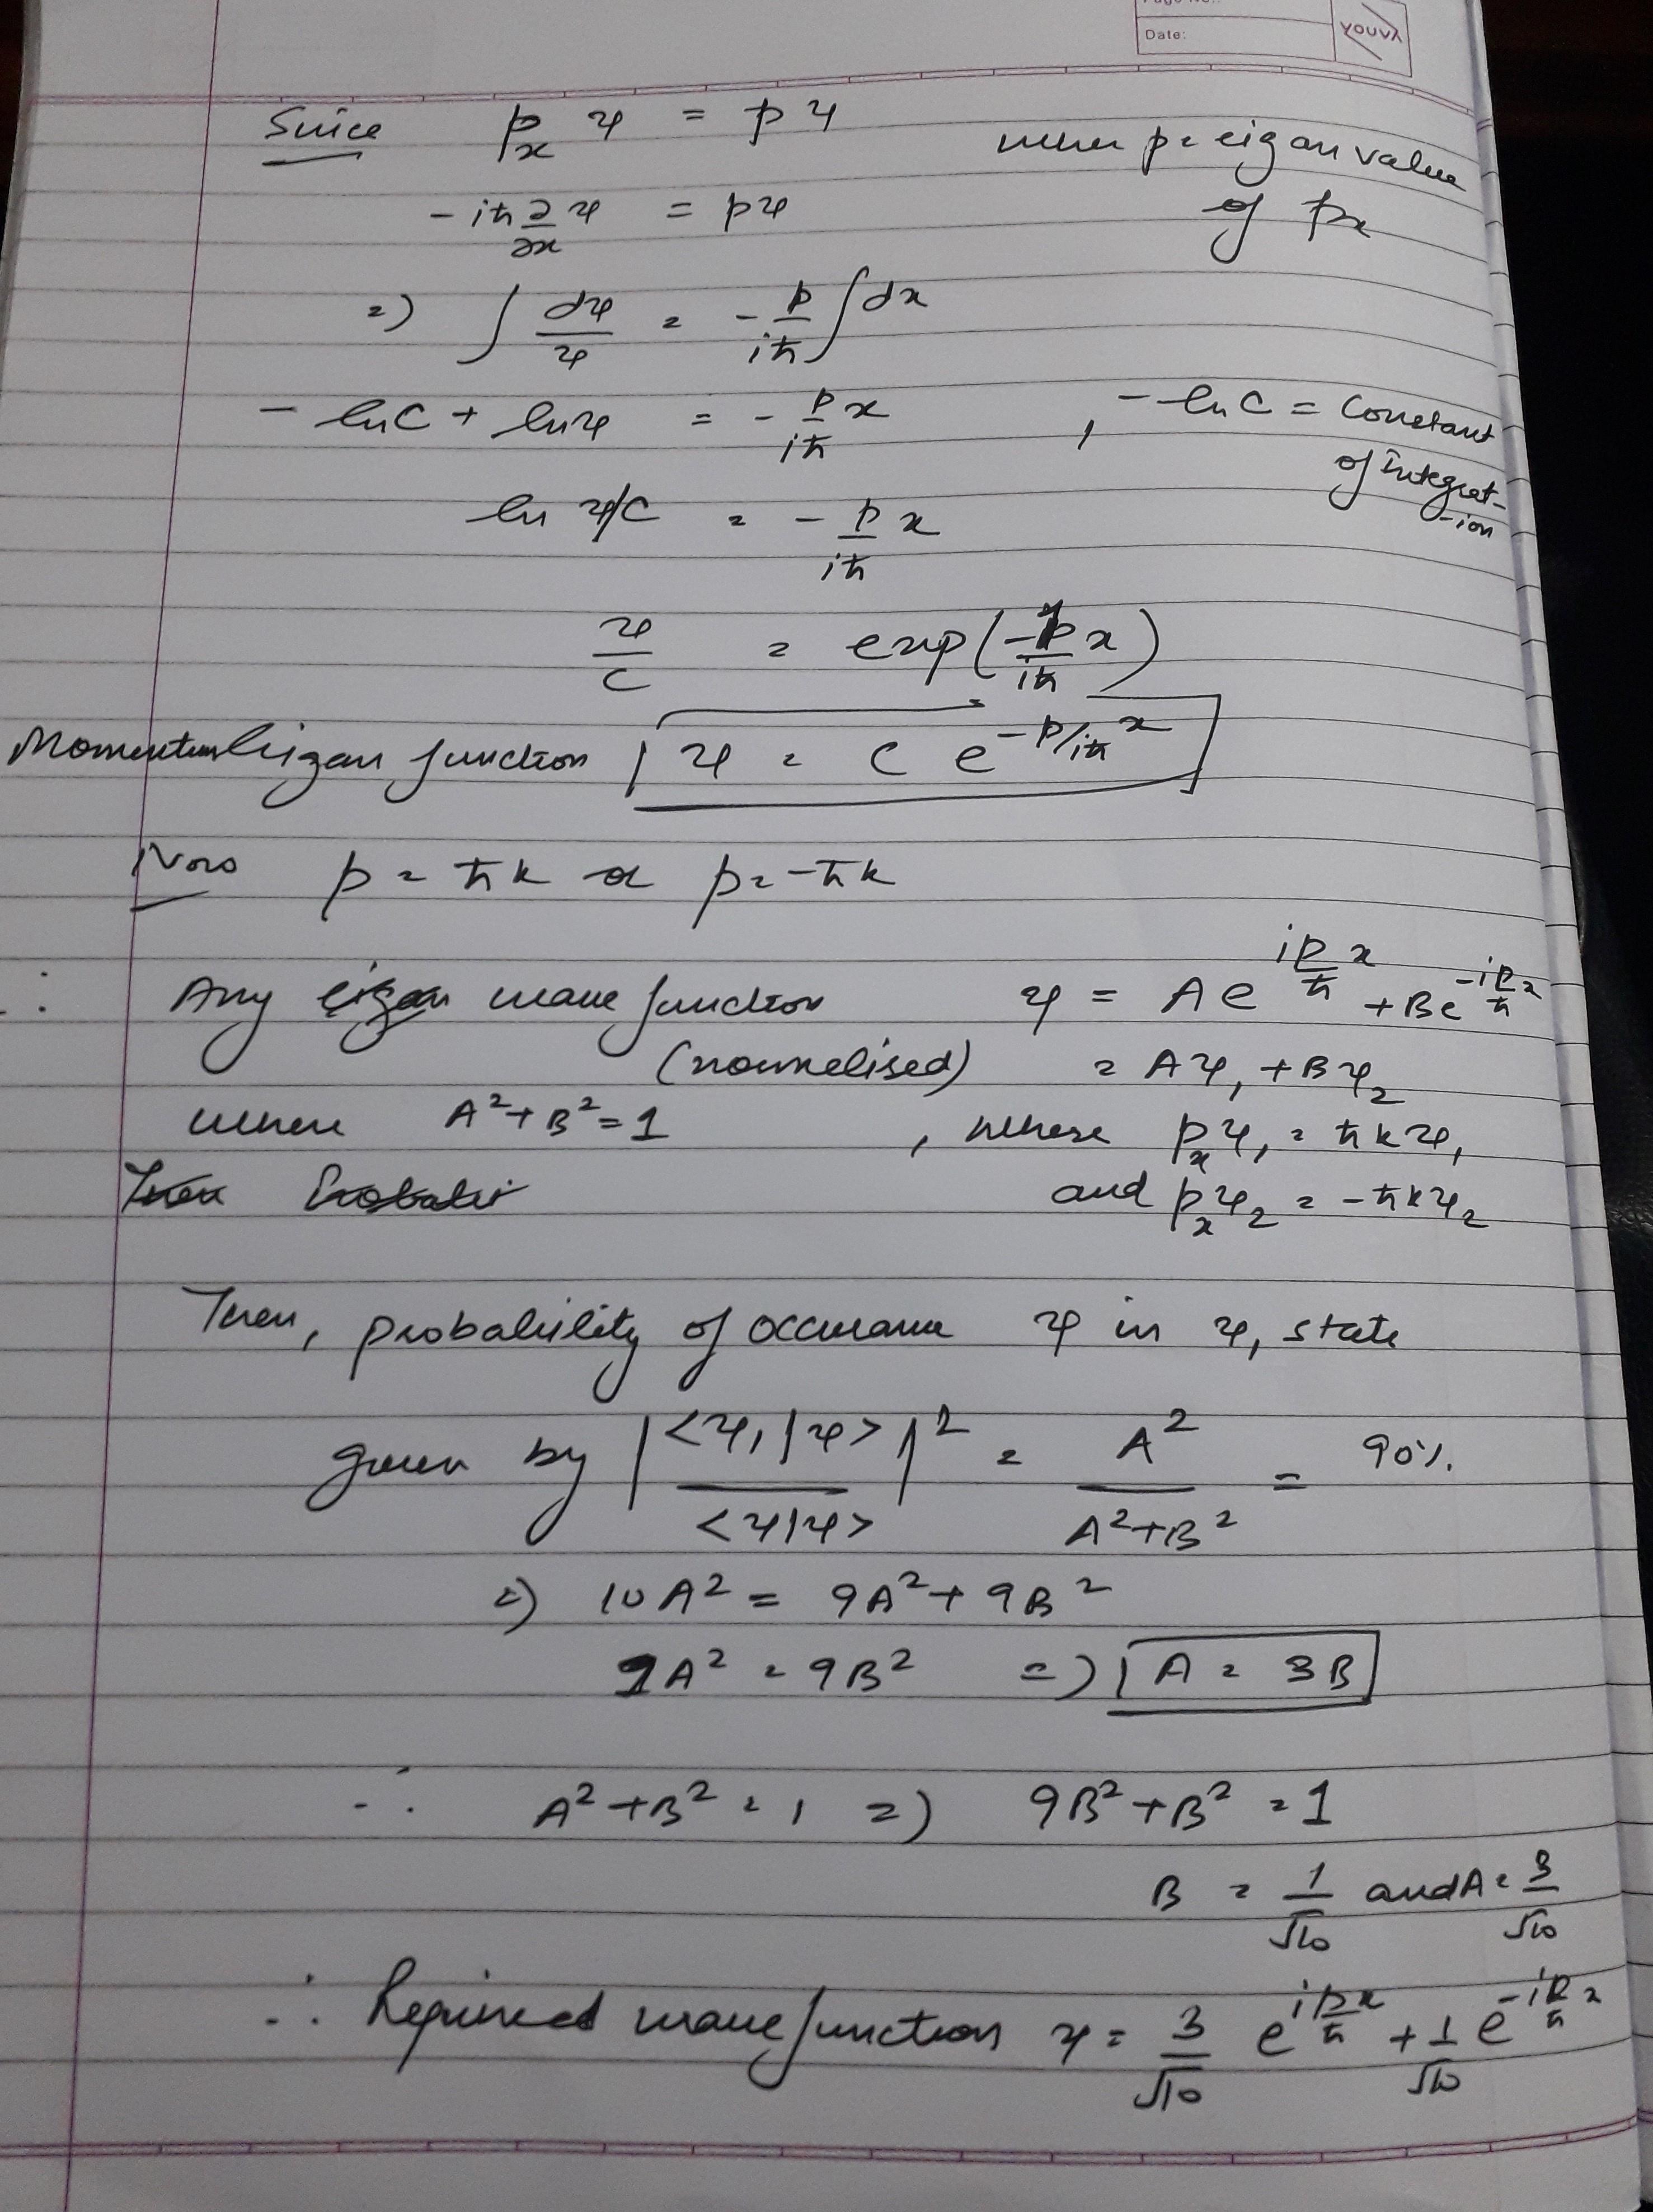 Page No.:
Date:
YOUVA
Since p_x ψ = pψ where p = eigen value of p_x
-iħ ∂/∂x ψ = pψ
=) ∫ dψ/ψ = - p/iħ ∫ dx
- ln C + ln ψ = - p/iħ x , - ln C = Constant of integrat-ion
ln ψ/C = - p/iħ x
ψ/C = exp(-p/iħ x)
Momentum Eigen function ψ = C e^{-p/iħ x}
Now p = ħk or p = -ħk
∴ Any eigen wave function ψ = A e^{i p/ħ x} + B e^{-i p/ħ x}
(normelised) = Aψ₁ + Bψ₂
where A² + B² = 1 , where p_x ψ₁ = ħkψ₁
and p_x ψ₂ = -ħkψ₂
Then, probability of occurance ψ in ψ₁ state
given by |<ψ₁|ψ> / <ψ|ψ>|² = A² / A²+B² = 90%
=) 10A² = 9A² + 9B²
1A² = 9B² =) A = 3B
∴ A² + B² = 1 =) 9B² + B² = 1
B = 1/√10 and A = 3/√10
∴ Required wave function ψ = 3/√10 e^{i p/ħ x} + 1/√10 e^{-i p/ħ x}